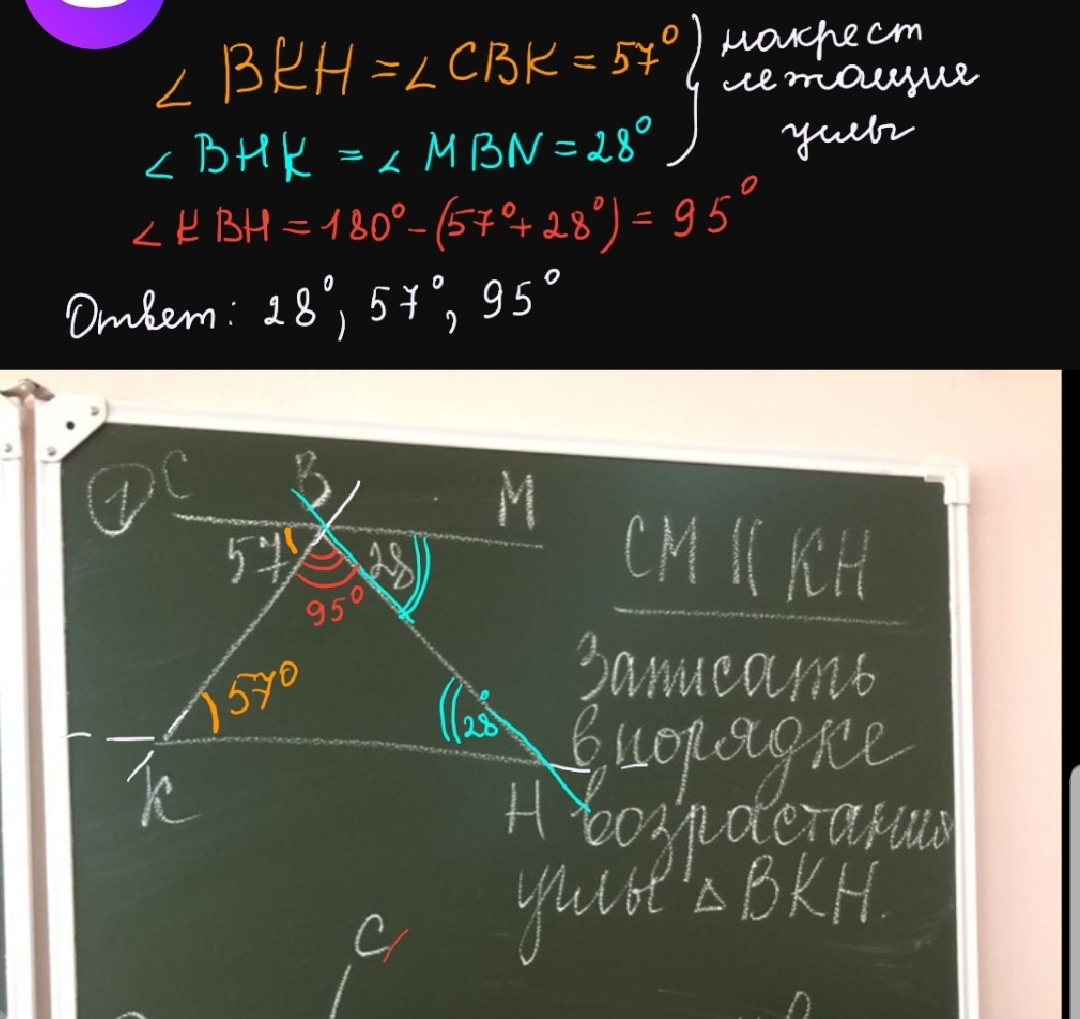 ∠ BKH = ∠ CBK = 57°
накрест
лежащие
углы
∠ BHK = ∠ MBN = 28°
∠ KBH = 180° - (57° + 28°) = 95°
Ответ: 28°, 57°, 95°
1
C B M
57 28
95°
CM || KH
57°
28°
K
H
Записать
в порядке
возрастания
углы △ BKH.
C